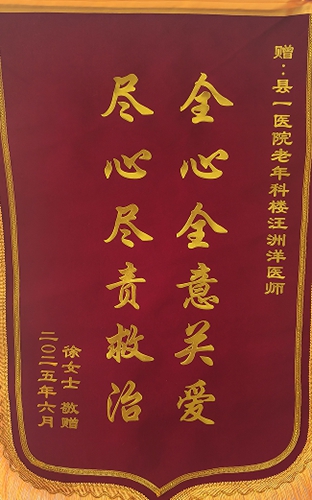 赠：县一医院老年科楼汪洲洋医师
全心全意关爱
尽心尽责救治
徐女士 敬赠
二〇二五年六月